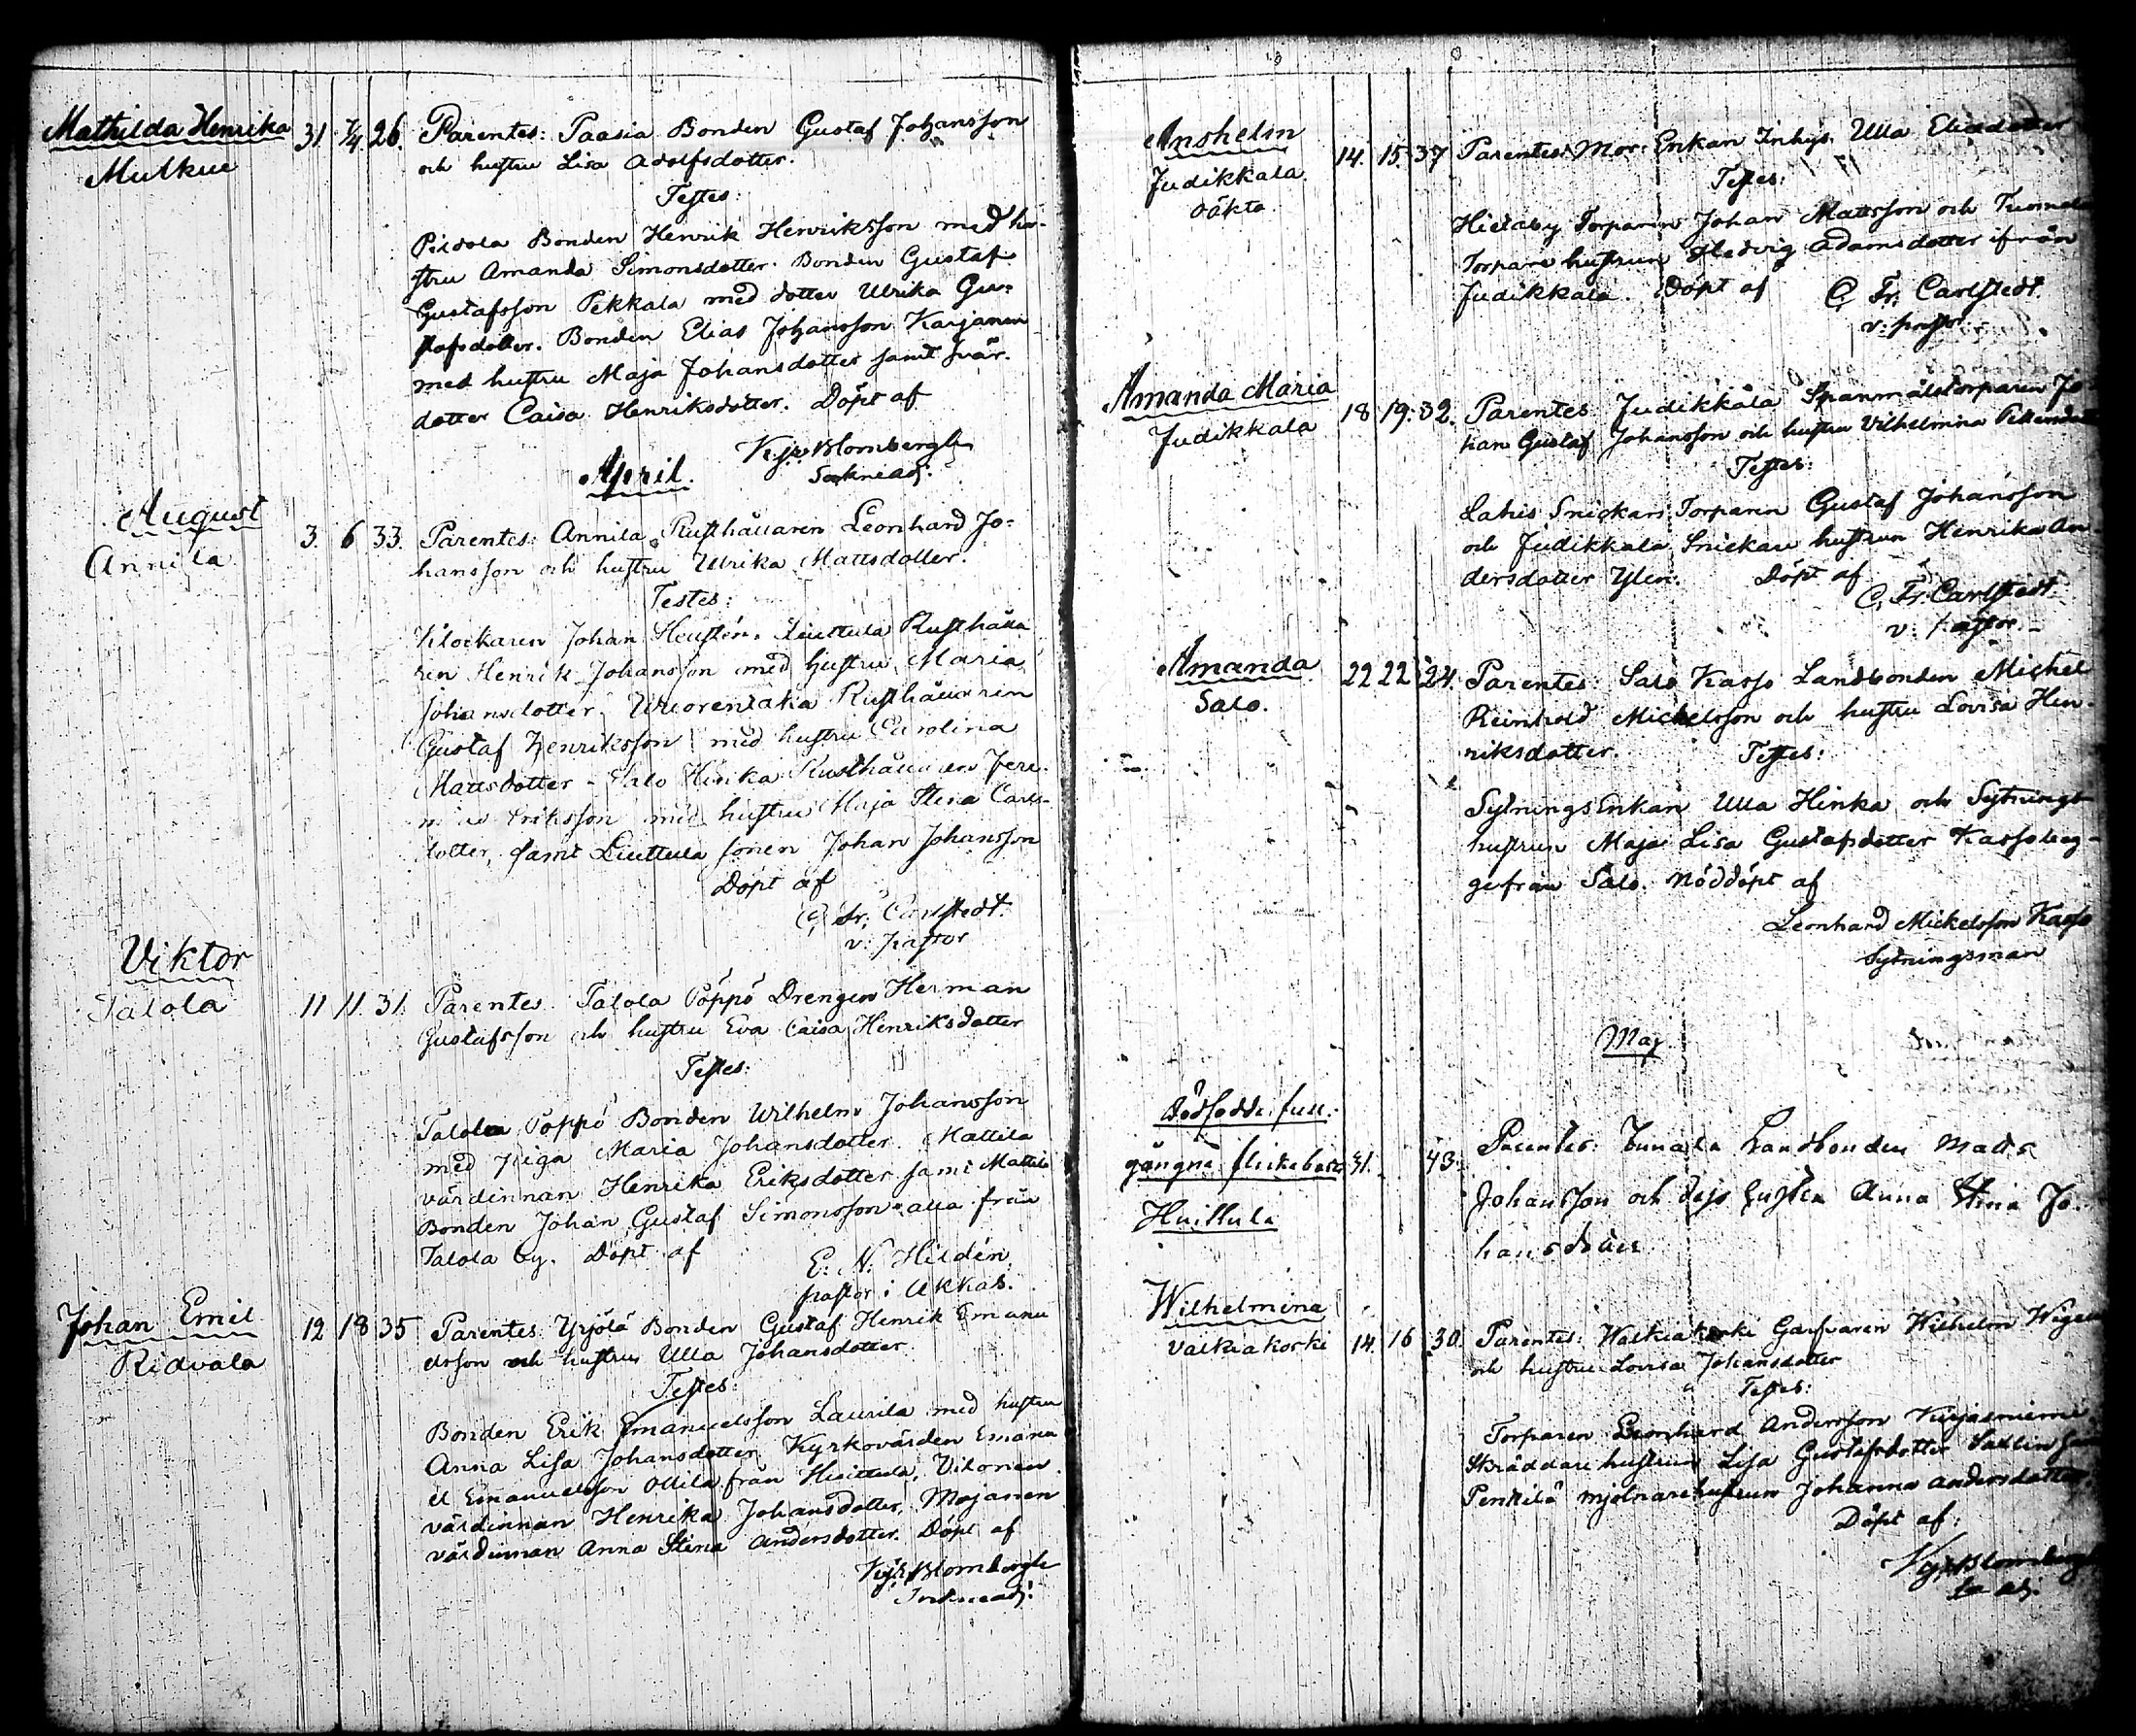 Mathilda Henrika 31. 7/4 26. Parentes: Paasia Bonden Gustaf Johansson
Mulkue
och hustru Lisa Adolfsdotter.
Testes:
Bonden Henrik Henriksson med hu-
stru Amanda Simonsdotter. Bonden Gustaf
Gustafsson Pekkala med dotter Ulrika Gu-
stafsdotter. Bonden Elias Johansson Karjanen
med hustru Maja Johansdotter samt svär-
dotter Caisa Henriksdotter. Döpt af
Blombergh
Sockneadj:
April.
August 3. 6 33. Parentes: Annila Rusthållaren Leonhard Jo-
Annila
hansson och hustru Ulrika Mattsdotter.
Testes:
Klockaren Johan Heustén. Liuttula Rusthålla
ren Henrik Johansson med hustru Maria
Johansdotter. Wuorentaka Rusthållaren
Gustaf Henriksson med hustru Carolina
Mattsdotter - Salo Hinka Rusthållaren Jere-
mias Eriksson med hustru Maja Stena Carls-
dotter, samt Liuttula sonen Johan Johansson
Döpt af
C. Fr. Carlstedt.
v. pastor
Viktor
Talola 11 11. 31. Parentes. Talola Poppo Drengen Herman
Gustafsson och hustru Eva Caisa Henriksdotter
Testes:
Talola Poppo Bonden Wilhelm Johansson
med piga Maria Johansdotter. Mattila
värdinnan Henrika Eriksdotter samt Mattila
Bonden Johan Gustaf Simonsson alla från
Talola by. Döpt af
E. N. Hildén.
pastor i Akkas.
Johan Emil 12 18 35 Parentes: Yrjölä Bonden Gustaf Henrik Emanu
Ridvala
elsson och hustru Ulla Johansdotter.
Testes:
Bonden Erik Emanuelsson Laurila med hustru
Anna Lisa Johansdotter, Kyrkovärden Emanu
el Emanuelsson Ollila från Huittula,
värdinnan Henrika Johansdotter, Majanen
värdinnan Anna Stina Andersdotter. Döpt af
Blombergh
Sockneadj:
Anshelm 14. 15. 37 Parentes: Mor: Enkan Inhys. Ulla Eliedotter
Judikkala
oäkta
Testes:
Hietaby Torparen Johan Mattsson och
Torpare hustrun Hedvig Adamsdotter ifrån
Judikkala. Döpt af C. Fr. Carlstedt
v: pastor
Amanda Maria 18 19. 32. Parentes Judikkala Spanmålstorparen Jo-
Judikkala
han Gustaf Johansson och hustru Vilhelmina
Testes:
Lahis Snickars Torparen Gustaf Johansson
och Judikkala Snickare hustrun Henrika An
dersdotter Ylen. Döpt af
C. Fr. Carlstedt.
v: pastor.
Amanda 22 22 24. Parentes: Salo Kasso Landbonden Michel
Salo.
Reinhold Michelsson och hustru Lovisa Hen-
riksdotter. Testes:
Sytnings Enkan Ulla Hinka och Sytnings
hustrun Maja Lisa Gustafsdotter Kasso beg-
ge från Salo. Nöddöpt af
Leonhard Mickelsson Kasso
Sytningsman
Maj
Dödfödde full-
gångne flickebarn 41. 43. Parentes: Landbonden Matts
Huittula
Johansson och dess hustru Anna Stina Jo-
hansdotter
Wilhelmina
Valkiakorki 14. 16 30. Parentes: Walkiakorki Garfvaren Wilhelm
och hustru Lovisa Johansdotter
Testes:
Torparen Leonhard Andersson Kirjasniemi
Skräddare hustrun Lisa Gustafsdotter
Penkilä mjölnarehustrun Johanna Andersdotter
Döpt af:
Blombergh